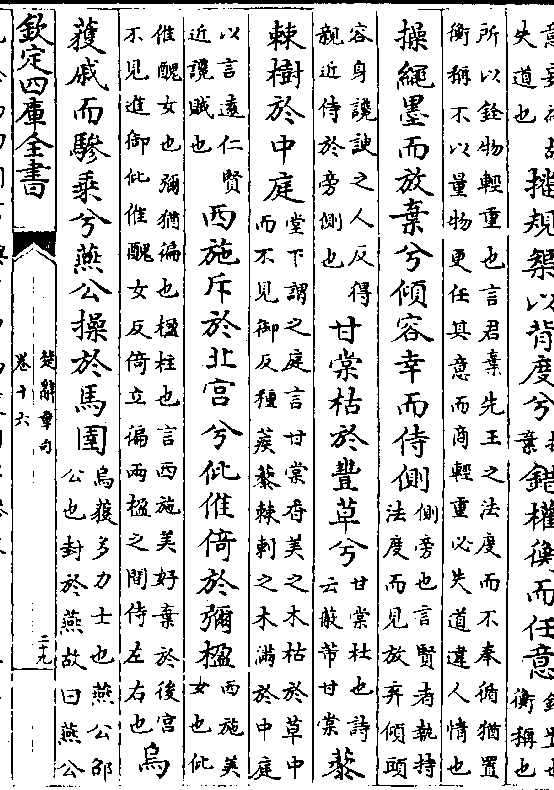 失道也
規榘以背度兮
棄
錯權衡而任意
衡稱也
所以銓物輕重也言君棄先王之法度而不奉循猶置
衡稱不以量物更任其意而商輕重必失道違人情也
操繩墨而放棄兮傾容幸而侍側
側旁也言賢者執持
法度而見放弃傾頭
容身讒諛之人反得
親近侍於旁側也
甘棠枯於豐草兮
甘棠杜也詩
云蔽芾甘棠
藜
棘樹於中庭
堂下謂之庭言甘棠香美之木枯於草中
而不見御反種蒺藜棘刺之木滿於中庭
以言遠仁賢
近讒賊也
西施斥於北宮兮仳倠倚於彌楹
西施美
女也仳
倠醜女也彌猶徧也楹柱也言西施美好棄於後宮
不見進御仳倠醜女反倚立徧兩楹之間侍左右也
烏
獲戚而驂乘兮燕公操於馬圉
烏獲多力士也燕公邵
公也封於燕故曰燕公
欽定四庫全書
楚辭章句
卷十六
二十九